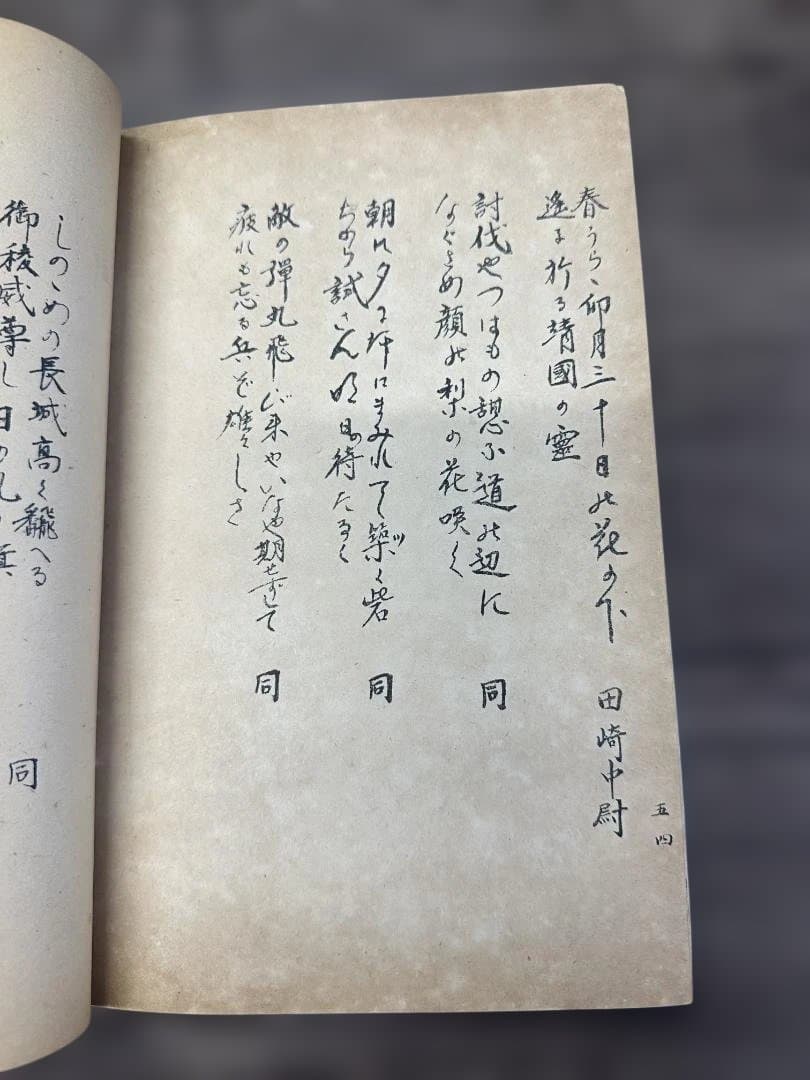 春うらゝ卯月三十日の花の下 田崎中尉
遙に祈る靖國の靈
討伐やつはもの憩ふ道の辺に 同
なぐさめ顔の梨の花咲く
朝に夕に汗にまみれて築く砦 同
ツ
ちから試さん明日の待たるゝ
敵の彈丸飛び来やいなや期せずして 同
疲れも忘る兵ぞ雄々しき
五四
しのゝめの長城高く飜へる 同
御稜威尊し日の丸の